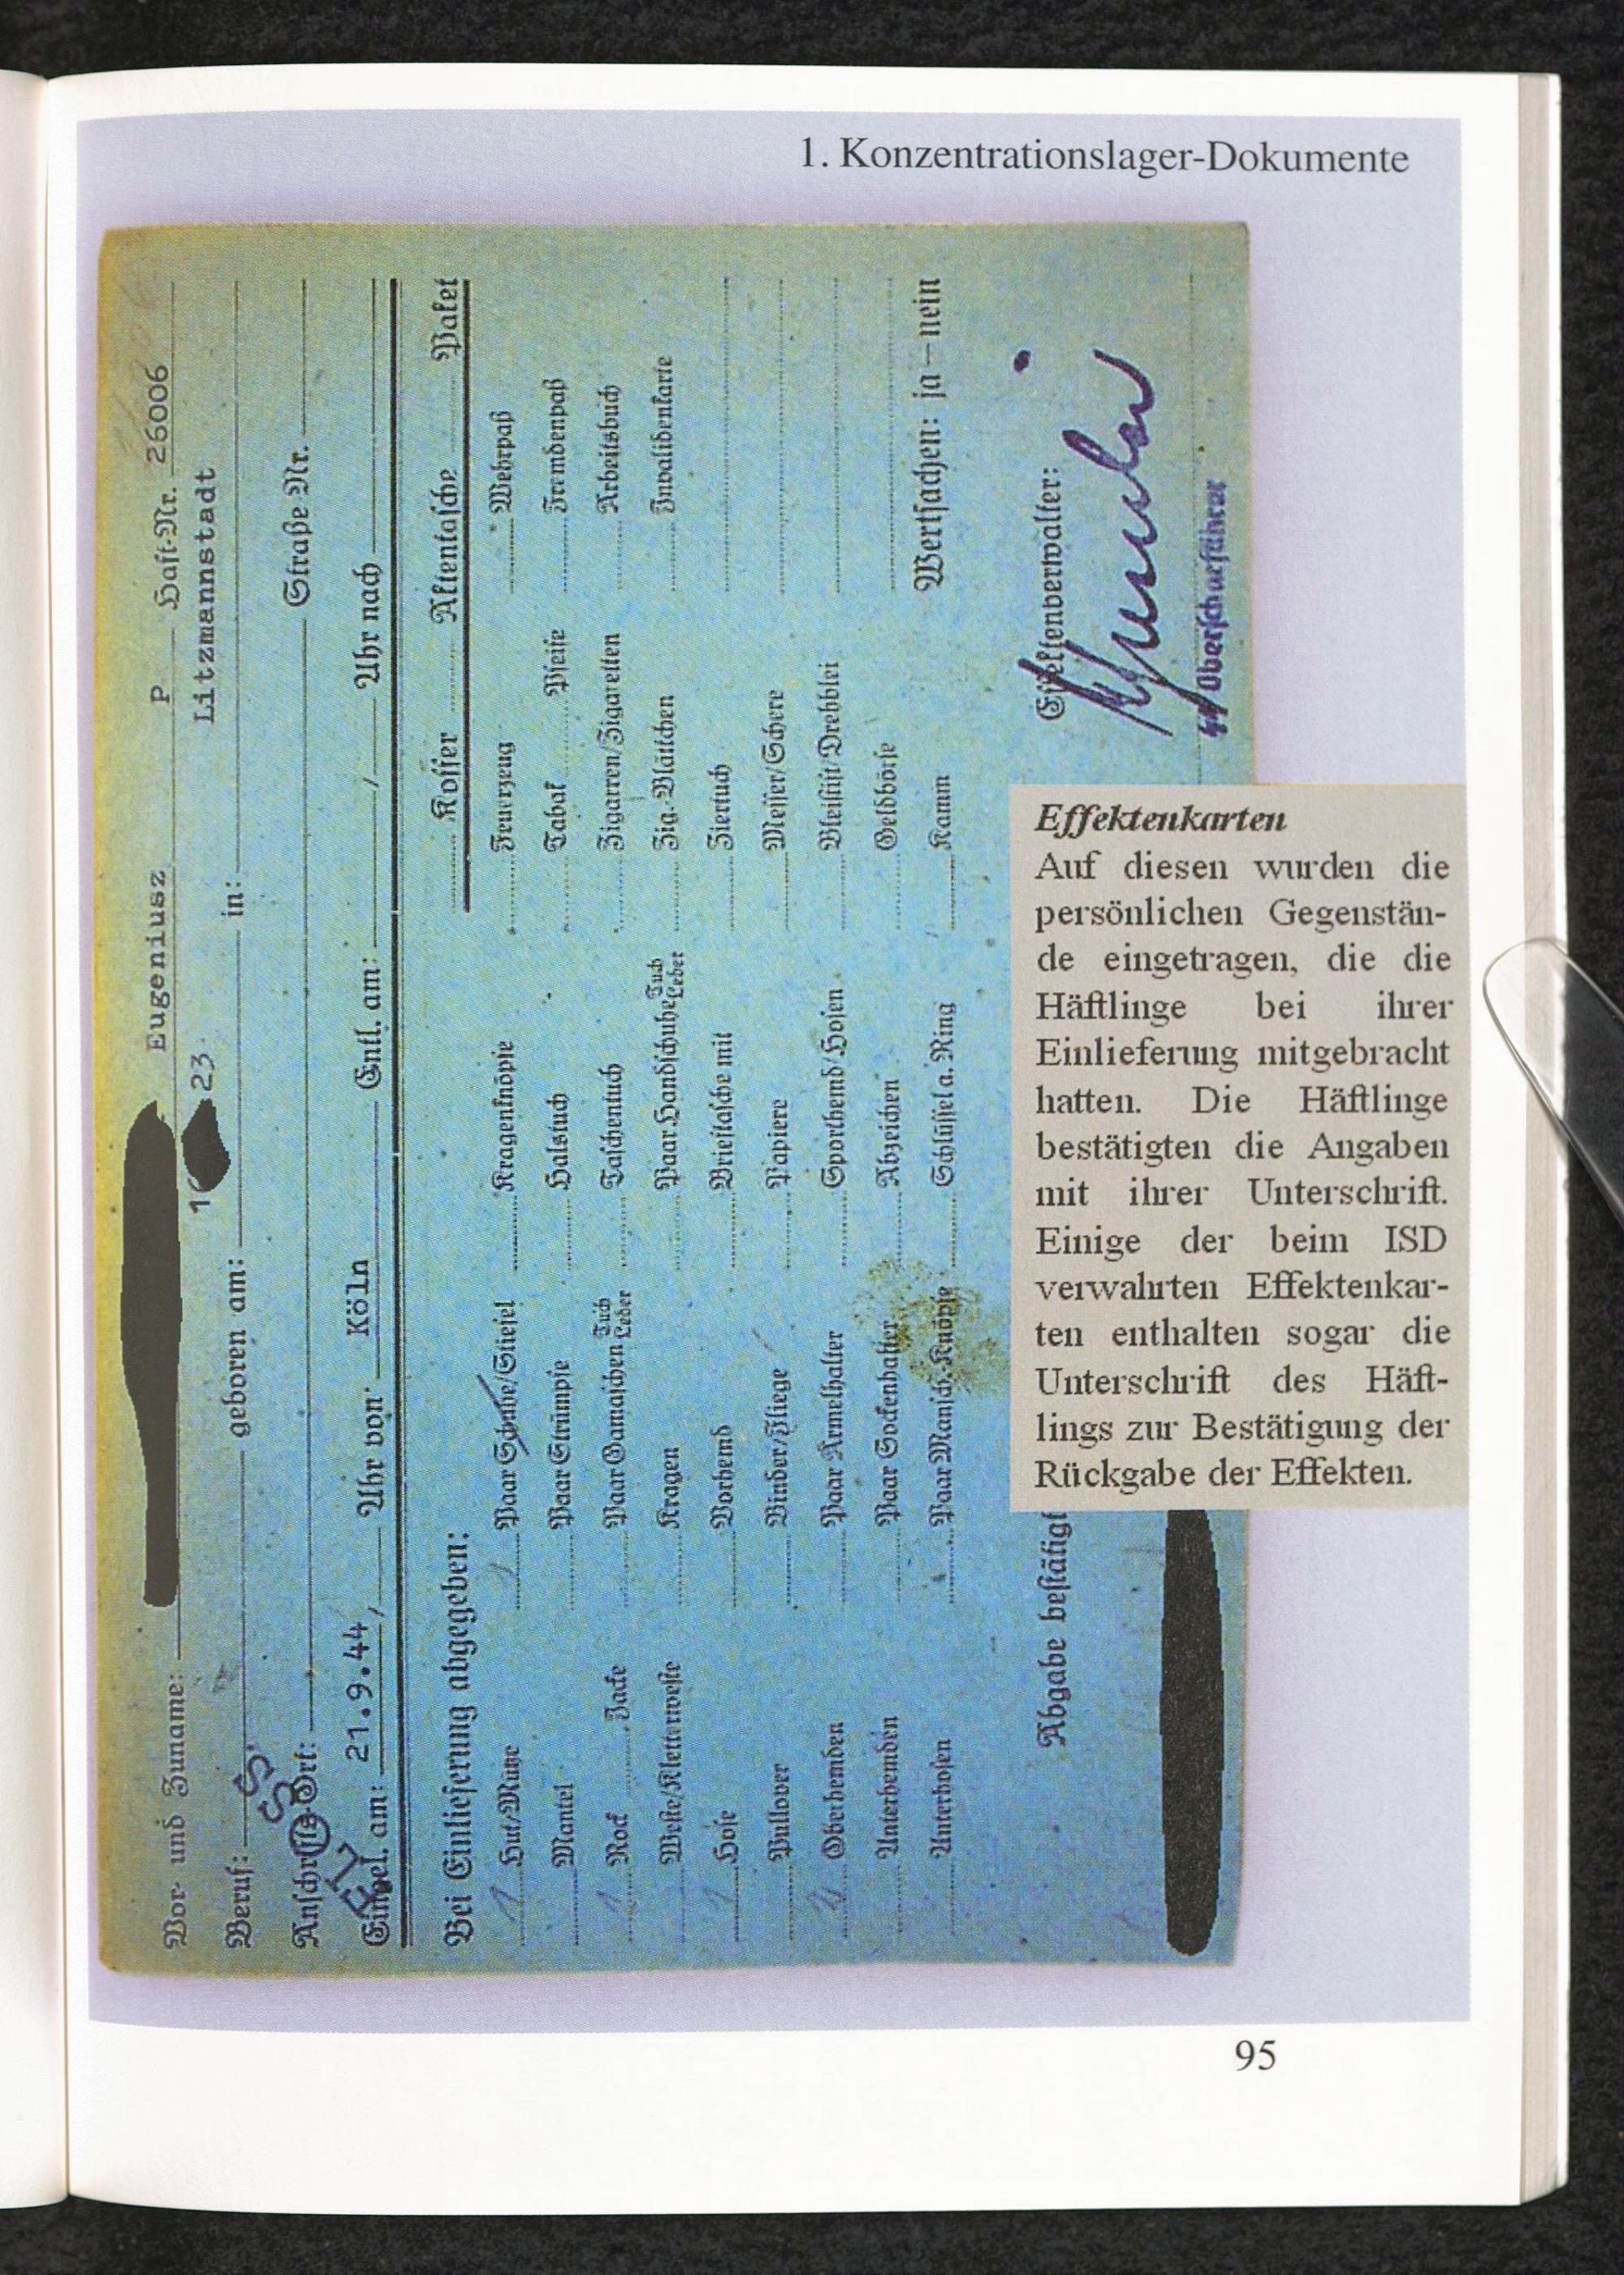 1. Konzentrationslager-Dokumente
Vor- und Zuname: Eugeniusz P Haft-Nr. 26006
Beruf: geboren am: 23. in: Litzmannstadt
Anschrift: Ort: Straße Nr.
Eingel. am: 21.9.44 / Uhr von Köln Entl. am: / Uhr nach
Koffer Aktentasche Paket
Bei Einlieferung abgegeben:
1 Hut/Mütze Paar Schuhe/Stiefel Kragenknöpfe Feuerzeug Wehrpaß
Mantel Paar Strümpfe Halstuch Tabak Pfeife Fremdenpaß
1 Rock Jacke Paar Gamaschen Tuch Leder Taschentuch Zigarren/Zigaretten Arbeitsbuch
Weste/Kletterweste Kragen Paar Handschuhe Tuch Leder Zig.-Blättchen Invalidenkarte
1 Hose Vorhemd Brieftasche mit Ziertuch
Pullover Binder/Fliege Papiere Messer/Schere
Oberhemden Paar Ärmelhalter Sporthemd/Hosen Bleistift/Drehblei
Unterhemden Paar Sockenhalter Abzeichen Geldbörse
Unterhosen Paar Mansch.-Knöpfe Schlüssel a. Ring Kamm Wertsachen: ja – nein
Abgabe bestätigt
Effektenverwalter:
Oberscharführer
Effektenkarten
Auf diesen wurden die
persönlichen Gegenstän-
de eingetragen, die die
Häftlinge bei ihrer
Einlieferung mitgebracht
hatten. Die Häftlinge
bestätigten die Angaben
mit ihrer Unterschrift.
Einige der beim ISD
verwahrten Effektenkar-
ten enthalten sogar die
Unterschrift des Häft-
lings zur Bestätigung der
Rückgabe der Effekten.
95